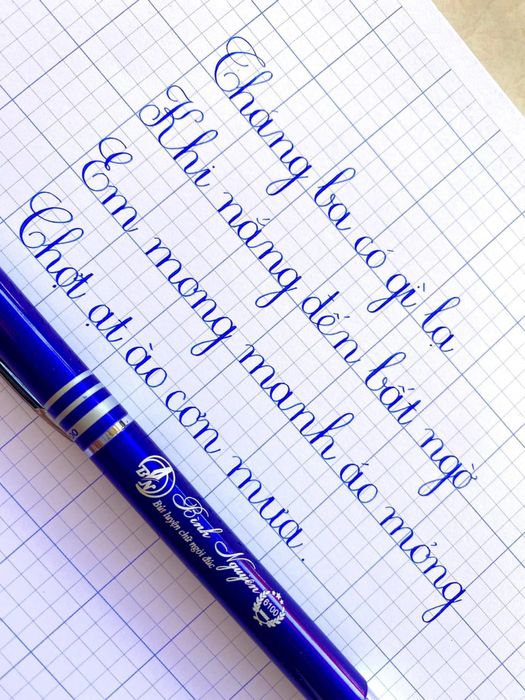 Tháng ba có gì lạ
Khi nắng đến bất ngờ
Em mong manh áo mỏng
Chợt ạt ào cơn mưa.
BN
Bình Nguyên
Bút luyện chữ ngòi đúc
6100